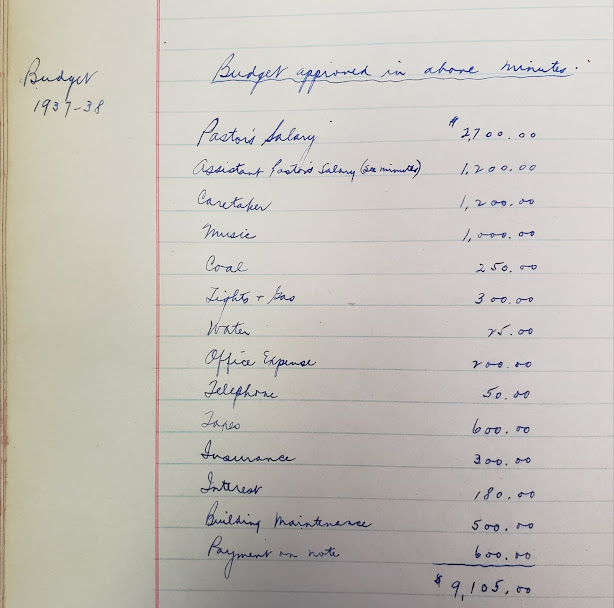 Budget
1937-38
Budget approved in above minutes.
Pastor's Salary $2,700.00
Assistant Pastor's Salary (see minutes) 1,200.00
Caretaker 1,200.00
Music 1,000.00
Coal 250.00
Lights + Gas 300.00
Water 25.00
Office Expense 200.00
Telephone 50.00
Taxes 600.00
Insurance 300.00
Interest 180.00
Building Maintenance 500.00
Payment on note 600.00
$9,105.00